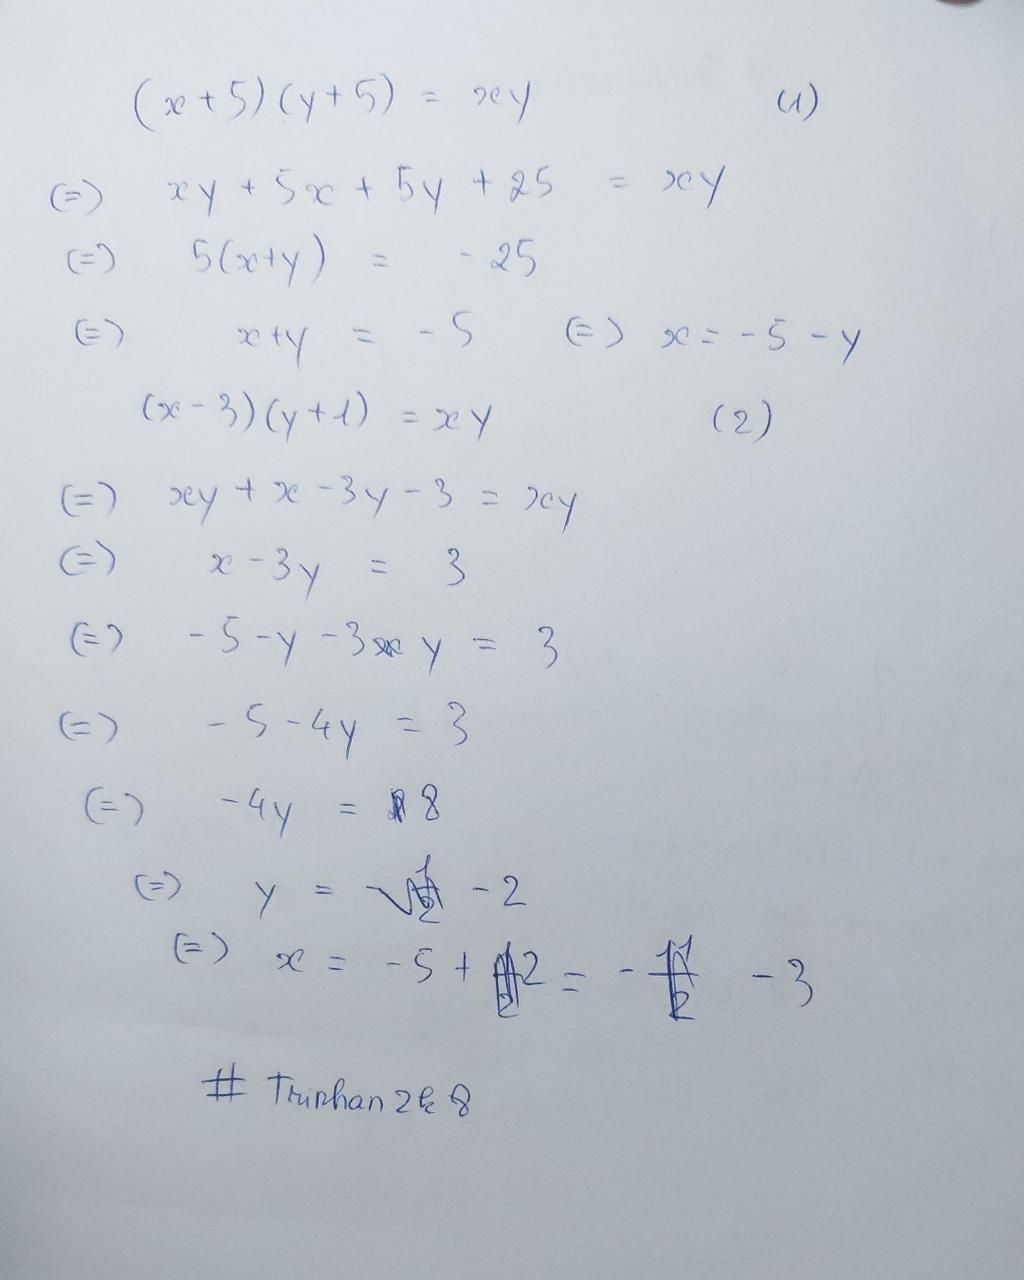 (x+5)(y+5) = xy (1)
(=) xy + 5x + 5y + 25 = xy
(=) 5(x+y) = -25
(=) x+y = -5 (=) x = -5 - y
(x-3)(y+1) = xy (2)
(=) xy + x - 3y - 3 = xy
(=) x - 3y = 3
(=) -5 - y - 3y = 3
(=) -5 - 4y = 3
(=) -4y = 8
(=) y = -2
(=) x = -5 + 2 = -3
# Trinhan2k8